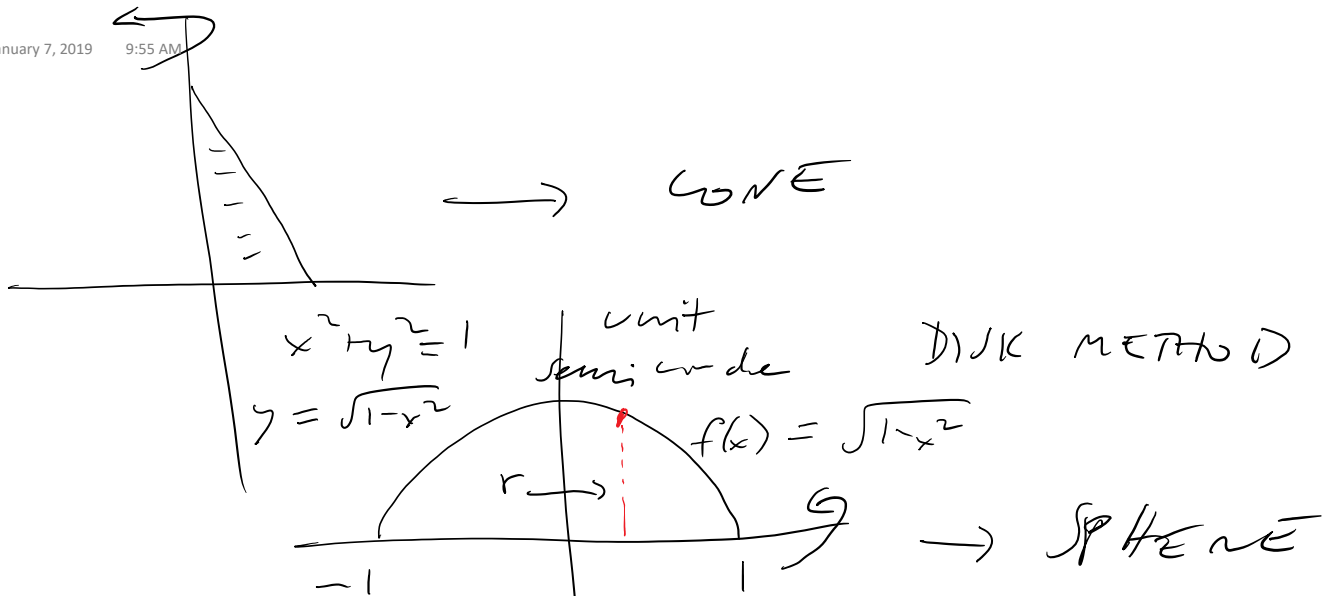 anuary 7, 2019 9:55 AM
→ CONE
x²+y²=1
y = √1-x²
unit
semicircle
DISK METHOD
f(x) = √1-x²
r →
→ SPHERE
-1 1